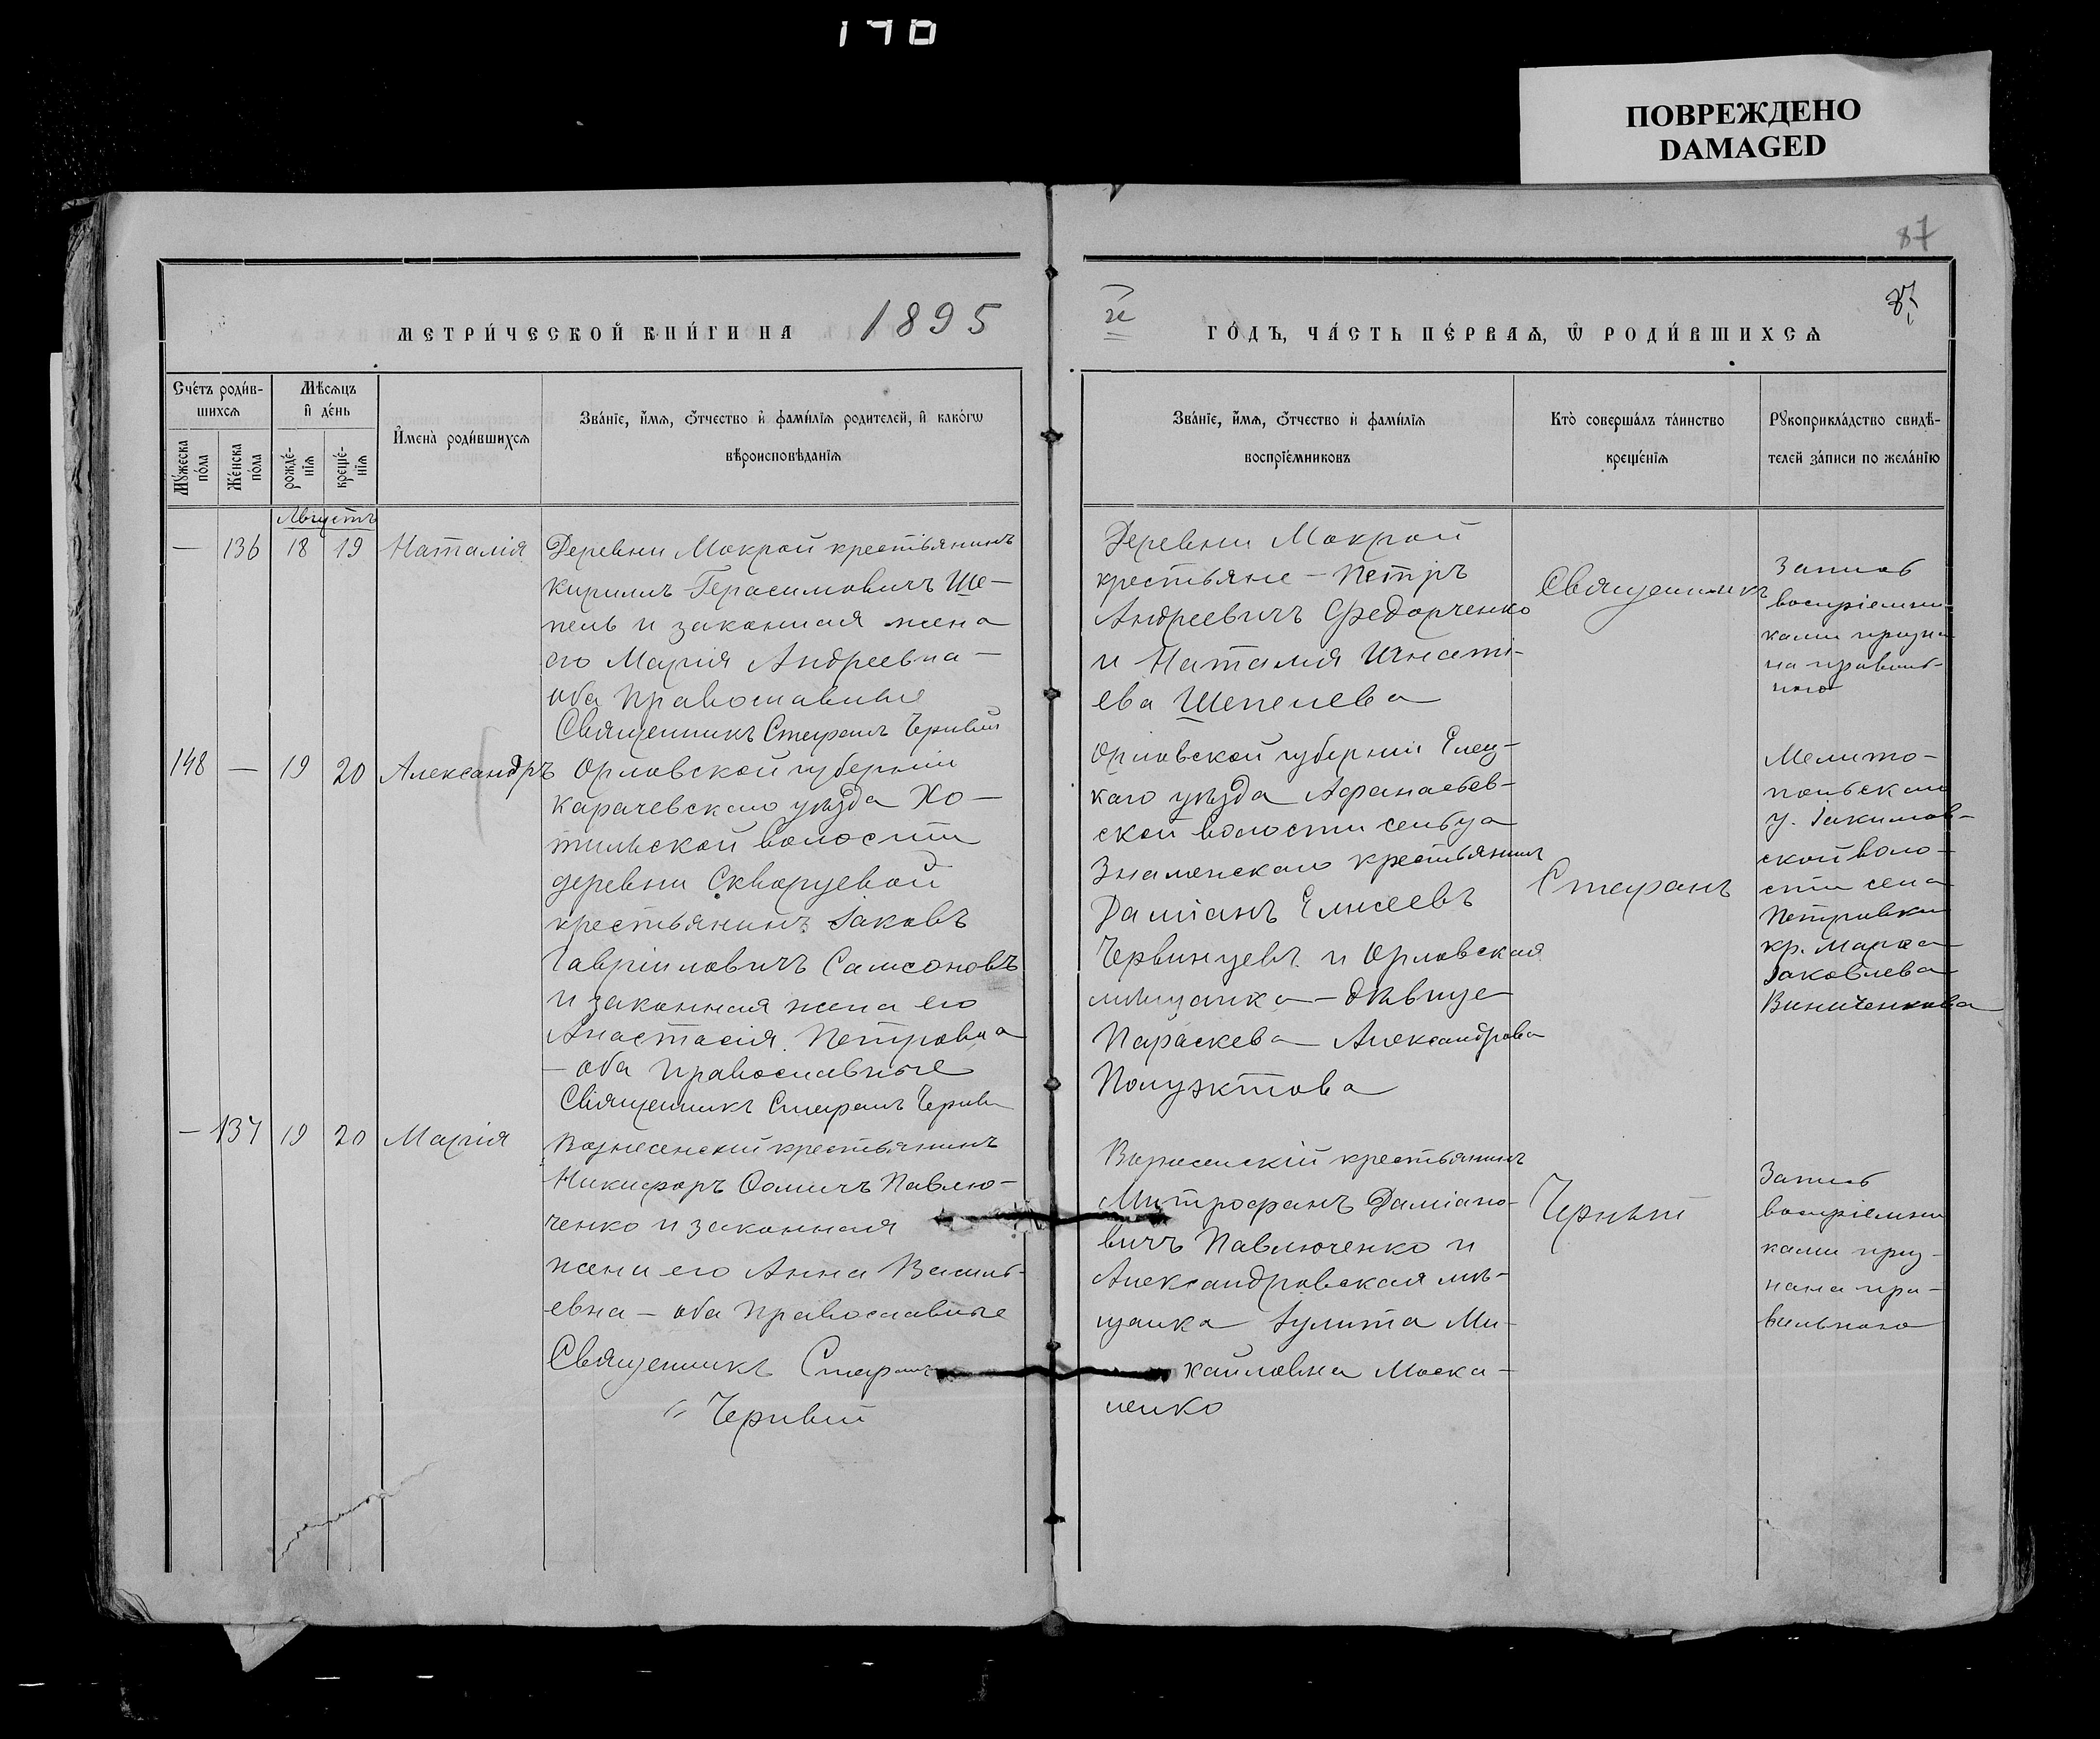 170
ПОВРЕЖДЕНО
DAMAGED
87
МЕТРИ́ЧЕСКОЙ КНИ́ГИ НА 1895
ГО́ДЪ, ЧА́СТЬ ПЕ́РВАѦ, Ѡ҆ РОДИ́ВШИХСѦ
Сче́тъ роди́в-
шихсѧ
Мѣ́сѧцъ
и҆ де́нь
Мꙋ́жеска
по́ла
Же́нска
по́ла
рожде́-
нїѧ
креще́-
нїѧ
И҆мена̀ роди́вшихсѧ
Зва́нїе, и҆́мѧ, ѻ҆́тчество и҆ фамѝлїѧ родителей, и҆ како́гѡ
вѣроисповѣ́данїѧ
Зва́нїе, и҆́мѧ, ѻ҆́тчество и҆ фамѝлїѧ
воспрїе́мниковъ
Кто̀ соверша́лъ та́инство
креще́нїѧ
Рꙋкоприкла́дство свидѣ́-
телей за́писи по жела́нїю
Августъ
— 136 18 19 Наталія
Деревни Мокрой крестьянинъ
Кириллъ Герасимовичъ Ше-
пель и законная жена
его Марія Андреевна —
оба православные
Священникъ Стефанъ Чернвій
Деревни Мокрой
крестьяне — Петръ
Андреевичъ Федорченко
и Наталия Игнаті-
ева Шепелева
Священникъ
Запись
воспріемни
ками призна
на правиль-
ною
148 — 19 20 Александръ
Орловской губерніи
Карачевскаго уѣзда Хо-
тильской волости
деревни Скворцевой
крестьянинъ Іаковъ
Гавріиловичъ Самсоновъ
и законная жена его
Анастасія Петровна
— оба православные
Священникъ Стефанъ
Орловской губерніи Елец-
каго уѣзда Афанасьев-
ской волости сельца
Знаменскаго крестьянинъ
Даміанъ Елисеевъ
Червинцевъ и Орловская
мѣщанка — дѣвица
Параскева Александрова
Полуэктова
Стефанъ
Мелито-
польскаго
у. Іакимов-
ской воло-
сти села
Петровки
кр. Марѳа
Іаковлева
Виниченкова
— 137 19 20 Марія
Вознесенскій крестьянинъ
Никифоръ Ѳомичъ Павлю-
ченко и законная
жена его Анна Василь-
евна — оба православные
Священникъ Стефанъ
Вознесенскій крестьянинъ
Митрофанъ Даміано-
вичъ Павлюченко и
Александровская мѣ-
щанка Іулита Ми-
хайловна Моска-
ленко
Запись
воспріемни
ками приз-
нана пра-
вильною